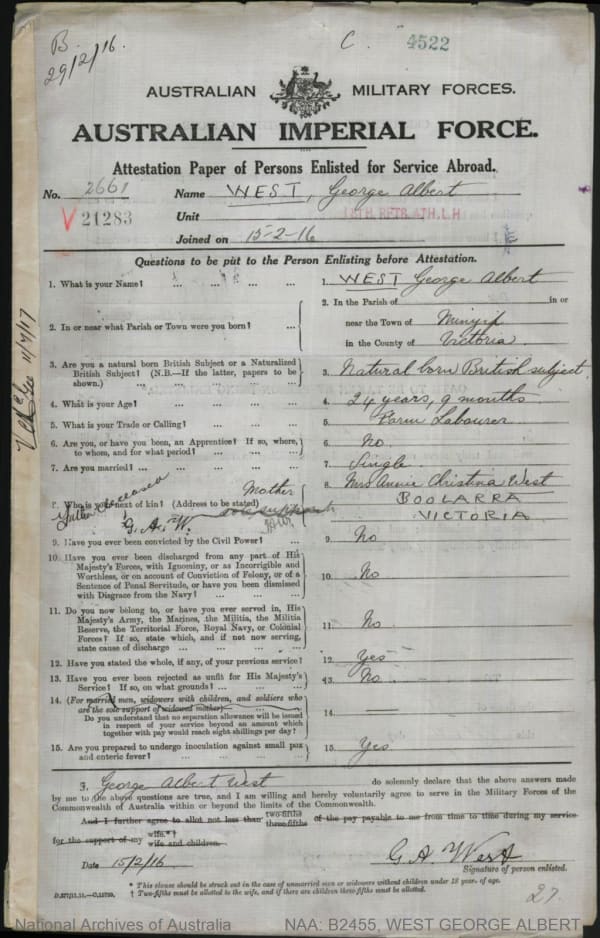 B.
29/2/16.
C.
4522
AUSTRALIAN MILITARY FORCES.
AUSTRALIAN IMPERIAL FORCE.
Attestation Paper of Persons Enlisted for Service Abroad.
No. 2661 Name WEST, George Albert
V 21283 Unit
Joined on 15-2-16
Questions to be put to the Person Enlisting before Attestation.
1. What is your Name? ... ... ... ... 1. WEST George Albert
2. In or near what Parish or Town were you born? ... 2. In the Parish of in or
near the Town of Minyip
in the County of Victoria
3. Are you a natural born British Subject or a Naturalized
British Subject? (N.B.—If the latter, papers to be
shown.) ... ... ... ... 3. Natural born British subject
4. What is your Age? ... ... ... ... 4. 24 years, 9 months
5. What is your Trade or Calling? ... ... ... 5. Farm Labourer
6. Are you, or have you been, an Apprentice? If so, where,
to whom, and for what period? ... ... ... 6. No.
7. Are you married? ... ... ... ... 7. Single
8. Who is your next of kin? (Address to be stated) Mother 8. Mrs Annie Christina West
BOOLARRA
VICTORIA
Father deceased
G.A.W. sole support
9. Have you ever been convicted by the Civil Power? ... 9. No
10. Have you ever been discharged from any part of His
Majesty's Forces, with Ignominy, or as Incorrigible and
Worthless, or on account of Conviction of Felony, or of a
Sentence of Penal Servitude, or have you been dismissed
with Disgrace from the Navy? ... ... ... 10. No.
11. Do you now belong to, or have you ever served in, His
Majesty's Army, the Marines, the Militia, the Militia
Reserve, the Territorial Force, Royal Navy, or Colonial
Forces? If so, state which, and if not now serving,
state cause of discharge ... ... ... ... 11. No.
12. Have you stated the whole, if any, of your previous service? 12. Yes
13. Have you ever been rejected as unfit for His Majesty's
Service? If so, on what grounds? ... ... ... 13. No.
14. (For married men, widowers with children, and soldiers who
are the sole support of widowed mother)—
Do you understand that no separation allowance will be issued
in respect of your service beyond an amount which
together with pay would reach eight shillings per day? 14.
15. Are you prepared to undergo inoculation against small pox
and enteric fever? ... ... ... ... 15. Yes
I, George Albert West do solemnly declare that the above answers made
by me to the above questions are true, and I am willing and hereby voluntarily agree to serve in the Military Forces of the
Commonwealth of Australia within or beyond the limits of the Commonwealth.
And I further agree to allot not less than two-fifths three-fifths of the pay payable to me from time to time during my service
for the support of my wife.* † wife and children.
Date 15/2/16 G. A. West
Signature of person enlisted.
* This clause should be struck out in the case of unmarried men or widowers without children under 18 years of age.
† Two-fifths must be allotted to the wife, and if there are children three-fifths must be allotted.
27.
National Archives of Australia NAA: B2455, WEST GEORGE ALBERT